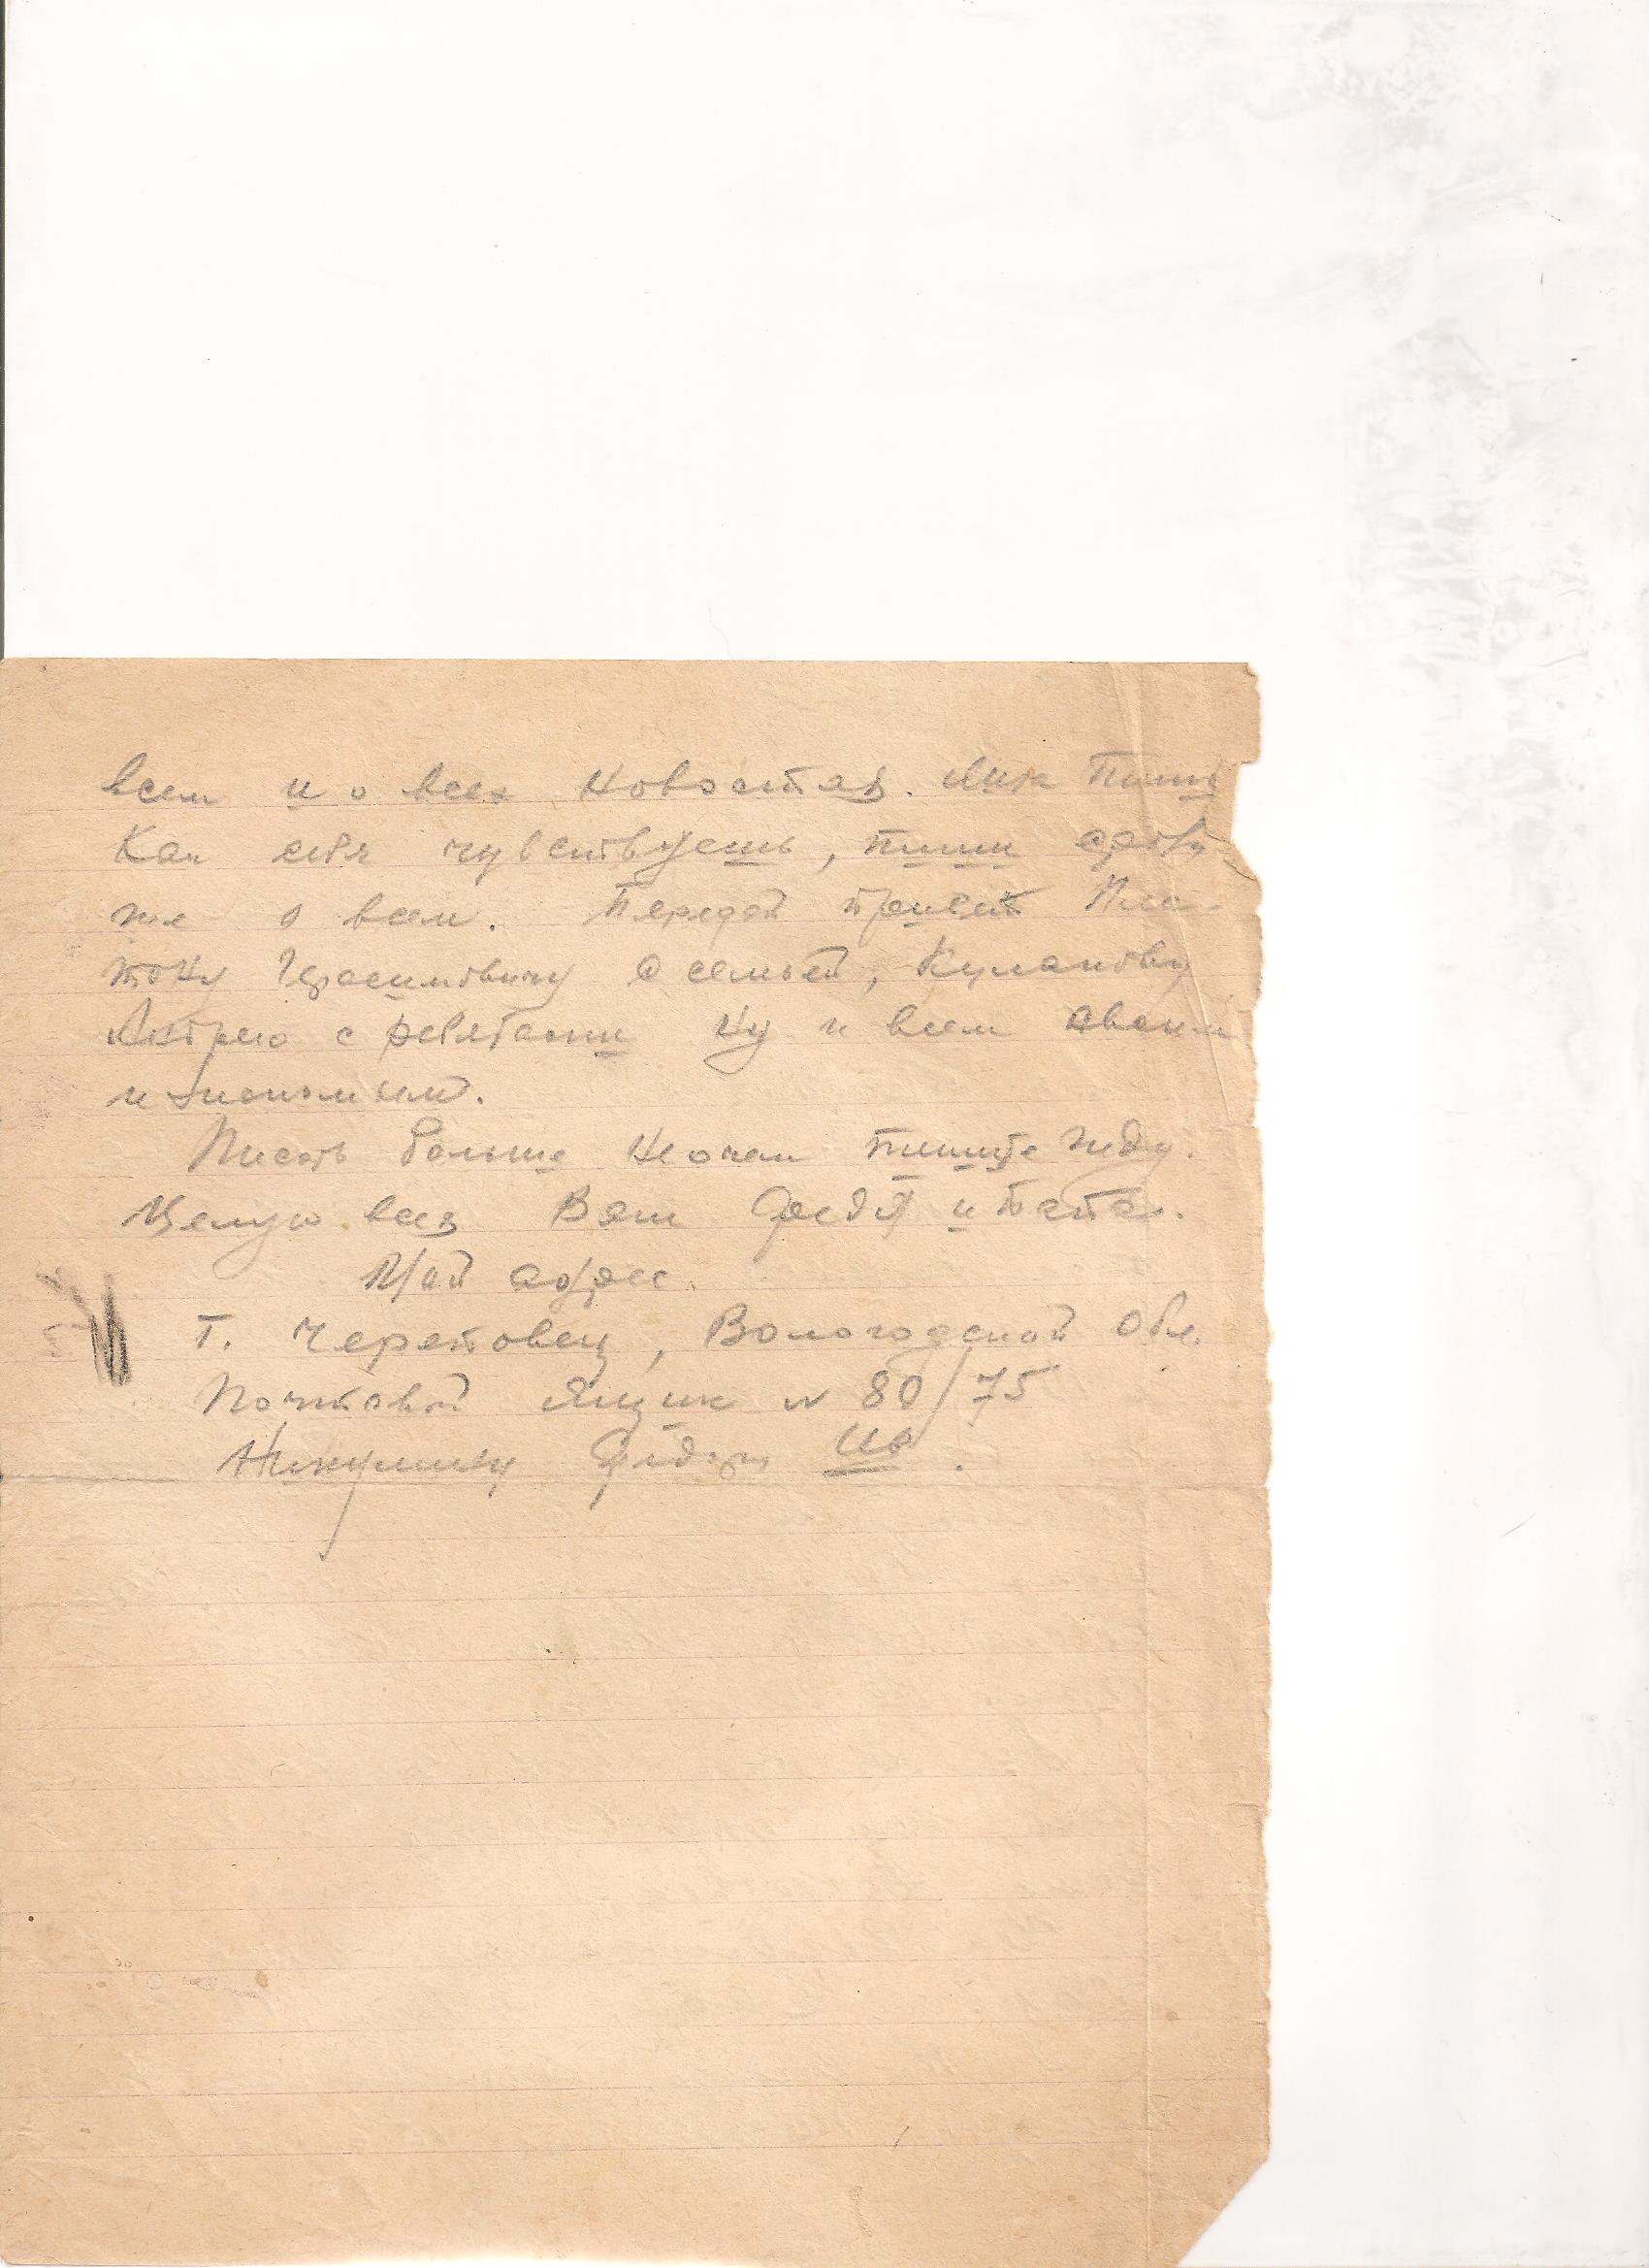 всем и о всех новостях. Лик пиши
Как себя чувствуешь, пиши
же о всем. Передай привет Пла-
тону Герасимовичу с семьей, Кулакову
Андрею с ребятами Ну и всем своим
и знакомым.
Писать больше неочем пишите жду.
Целую всех Ваш Федя и папа.
Мой адрес.
г. Череповец, Вологодской Обл.
Почтовой Ящик № 80/75
Никулину Федору Ив.